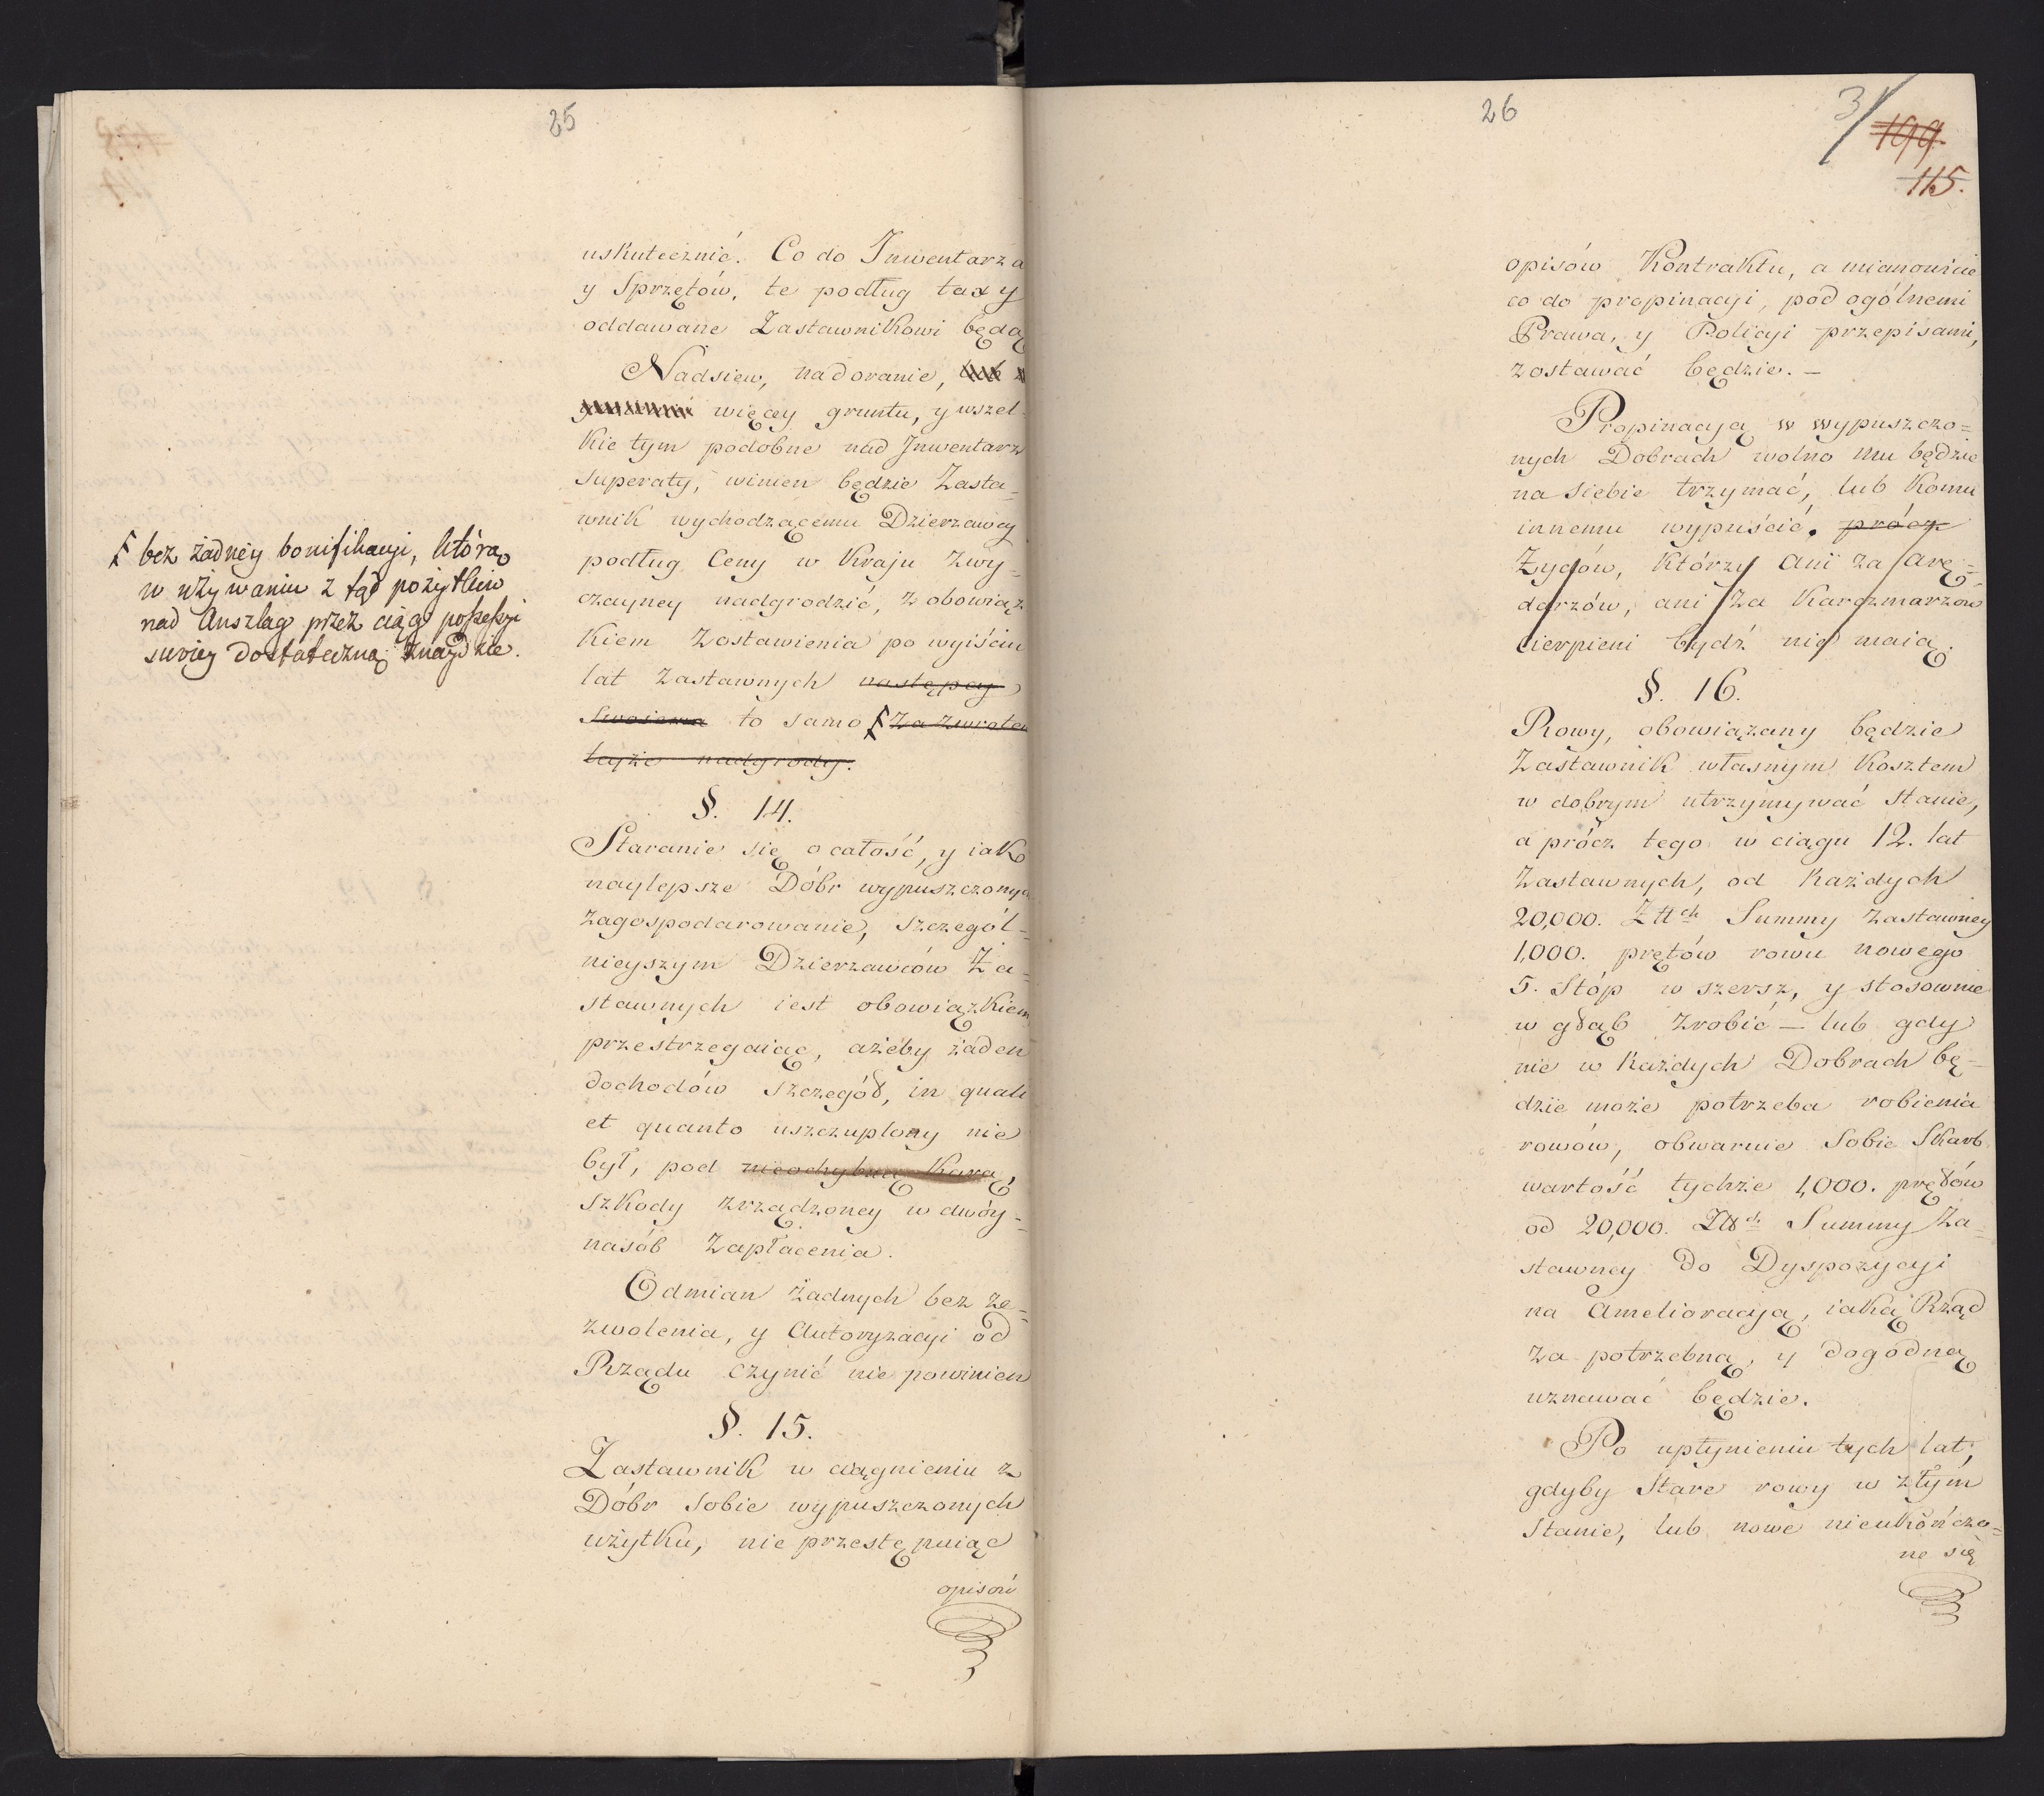 25
uskutecznić. Co do Inwentarza
y Sprzętów, te podług taxy
oddawane Zastawnikowi będą
Nadsiew, nadoranie, lub
więcey gruntu, y wszel-
kie tym podobne nad Inwentarz
superaty, winien będzie Zasta-
wnik wychodzącemu Dzierzawcy
podług Ceny w Kraju zwy-
czayney nadgrodzić, z obowiąz
kiem Zostawienia po wyiściu
lat Zastawnych następcy
Swoiemu to samo ƒ za zwrotem
teyże nadgrody.
ƒ bez żadney bonifikacyi, którą
w używaniu z tąd pożytków
nad Anszlag przez ciąg possessyi
swoiey dostateczną znaydzie.
§. 14.
Staranie się o całość, y iak
naylepsze Dóbr wypuszczonych
zagospodarowanie, szczegól-
nieyszym Dzierzawców Za-
stawnych iest obowiązkiem
przestrzegaiąc, ażeby żaden
dochodów szczegół, in quali
et quanto uszczuplony nie
był, pod nieochybną karą
szkody zrządzoney w dwóy-
nasób Zapłacenia.
Odmian żadnych bez ze-
zwolenia, y Autoryzacyi od
Rządu czynić nie powinien
§. 15.
Zastawnik w ciągnieniu z
Dóbr sobie wypuszczonych
użytku, nie przestępuiąc
opisów
26
3
199.
115.
opisów Kontraktu, a mianowicie
co do propinacyi, pod ogólnemi
Prawa, y Policyi przepisami,
zostawać będzie. —
Propinacyą w wypuszczo=
nych Dobrach wolno mu będzie
na siebie trzymać, lub komu
innemu wypuścić. prócz
Żydów, którzy ani za Arę-
darzów, ani za Karczmarzow
cierpieni bydź nie maią.
§. 16.
Rowy, obowiązany będzie
Zastawnik własnym kosztem
w dobrym utrzymywać stanie,
a prócz tego w ciągu 12. lat
Zastawnych, od każdych
20,000. Złłch Summy Zastawney
1,000. prętów rowu nowego
5. Stóp w szersz, y stosownie
w głąb zrobić — lub gdy
nie w każdych Dobrach bę-
dzie może potrzeba robienia
rowów, obwaruie sobie Skarb
wartość tychże 1,000. prętów
od 20,000. Złłch Summy Za-
stawney do Dyspozycyi
na Amelioracyą, iaką Rząd
za potrzebną, y dogodną
uznawać będzie.
Po upłynieniu tych lat,
gdyby Stare rowy w złym
Stanie, lub nowe nieukończo=
ne się